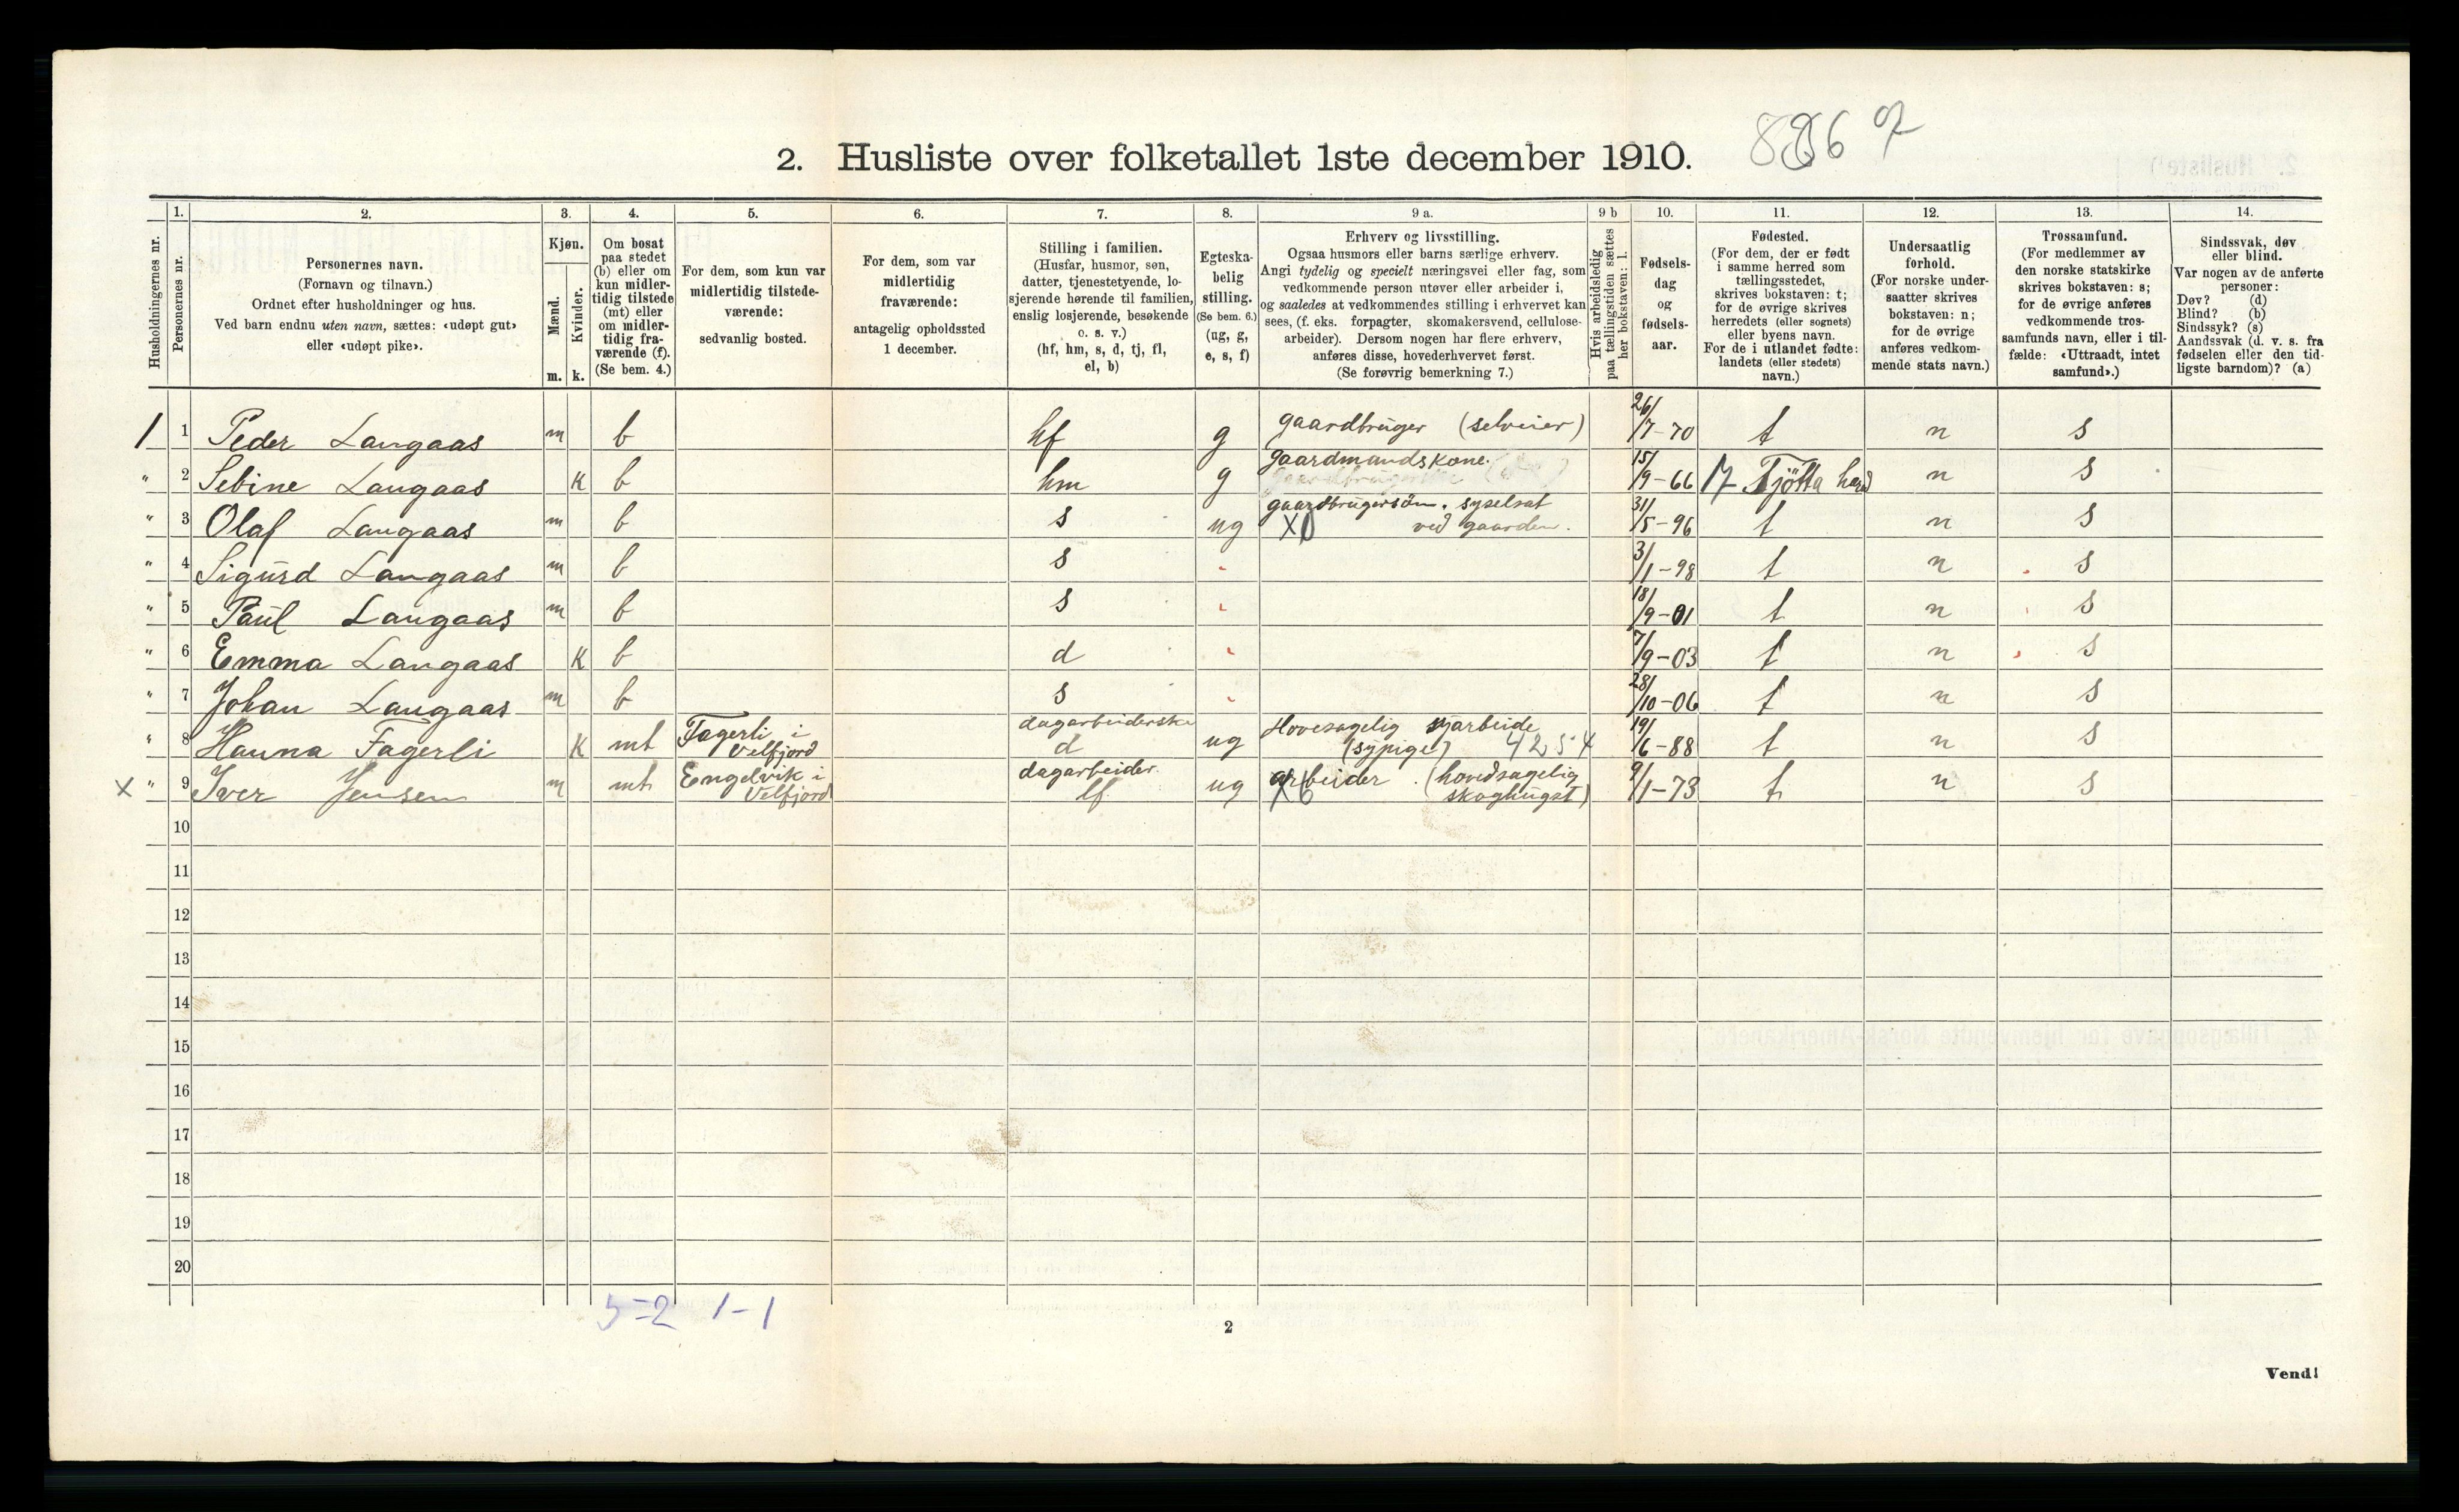 2. Husliste over folketallet 1ste december 1910.
Husholdningernes nr.
1.
Personernes nr.
2.
Personernes navn.
(Fornavn og tilnavn.)
Ordnet efter husholdninger og hus.
Ved barn endnu uten navn, sættes: «udøpt gut»
eller «udøpt pike».
3.
Kjøn.
Mænd.
Kvinder.
m. k.
4.
Om bosat
paa stedet
(b) eller om
kun midler-
tidig tilstede
(mt) eller
om midler-
tidig fra-
værende (f).
(Se bem. 4.)
5.
For dem, som kun var
midlertidig tilstede-
værende:
sedvanlig bosted.
6.
For dem, som var
midlertidig
fraværende:
antagelig opholdssted
1 december.
7.
Stilling i familien.
(Husfar, husmor, søn,
datter, tjenestetyende, lo-
sjerende hørende til familien,
enslig losjerende, besøkende
o. s. v.)
(hf, hm, s, d, tj, fl,
el, b)
8.
Egteska-
belig
stilling.
(Se bem. 6.)
(ug, g,
e, s, f)
9 a.
Erhverv og livsstilling.
Ogsaa husmors eller barns særlige erhverv.
Angi tydelig og specielt næringsvei eller fag, som
vedkommende person utøver eller arbeider i,
og saaledes at vedkommendes stilling i erhvervet kan
sees, (f. eks. forpagter, skomakersvend, cellulose-
arbeider). Dersom nogen har flere erhverv,
anføres disse, hovederhvervet først.
(Se forøvrig bemerkning 7.)
9 b
Hvis arbeidsledig
paa tællingstiden sættes
her bokstaven: l.
10.
Fødsels-
dag
og
fødsels-
aar.
11.
Fødested.
(For dem, der er født
i samme herred som
tællingsstedet,
skrives bokstaven: t;
for de øvrige skrives
herredets (eller sognets)
eller byens navn.
For de i utlandet fødte:
landets (eller stedets)
navn.)
12.
Undersaatlig
forhold.
(For norske under-
saatter skrives
bokstaven: n;
for de øvrige
anføres vedkom-
mende stats navn.)
13.
Trossamfund.
(For medlemmer av
den norske statskirke
skrives bokstaven: s;
for de øvrige anføres
vedkommende tros-
samfunds navn, eller i til-
fælde: «Uttraadt, intet
samfund».)
14.
Sindssvak, døv
eller blind.
Var nogen av de anførte
personer:
Døv? (d)
Blind? (b)
Sindssyk? (s)
Aandssvak (d. v. s. fra
fødselen eller den tid-
ligste barndom)? (a)
1 1 Peder Langaas m b hf g gaardbruger (selveier) 26/7-70 t n s
" 2 Sebine Langaas k b hm g gaardmandskone. 15/9-66 Tjötta herd n s
" 3 Olaf Langaas m b s ug gaardbrugersön. syselsat ved gaarden. 31/5-96 t n s
" 4 Sigurd Langaas m b s 3/1-98 t n s
" 5 Paul Langaas m b s 18/9-01 t n s
" 6 Emma Langaas k b d 7/9-03 t n s
" 7 Johan Langaas m b s 28/10-06 t n s
" 8 Hanna Fagerli k mt Fagerli i Velfjord dagarbeiderske d ug Hovesagelig syarbeide (sypige) 4254 19/6-88 t n s
x " 9 Iver Jensen m mt Engelvik i Velfjord dagarbeider lf ug arbeider (hovedsagelig skoghugst) 9/1-73 t n s
10
11
12
13
14
15
16
17
18
19
20
5-2 1-1
2
Vend!